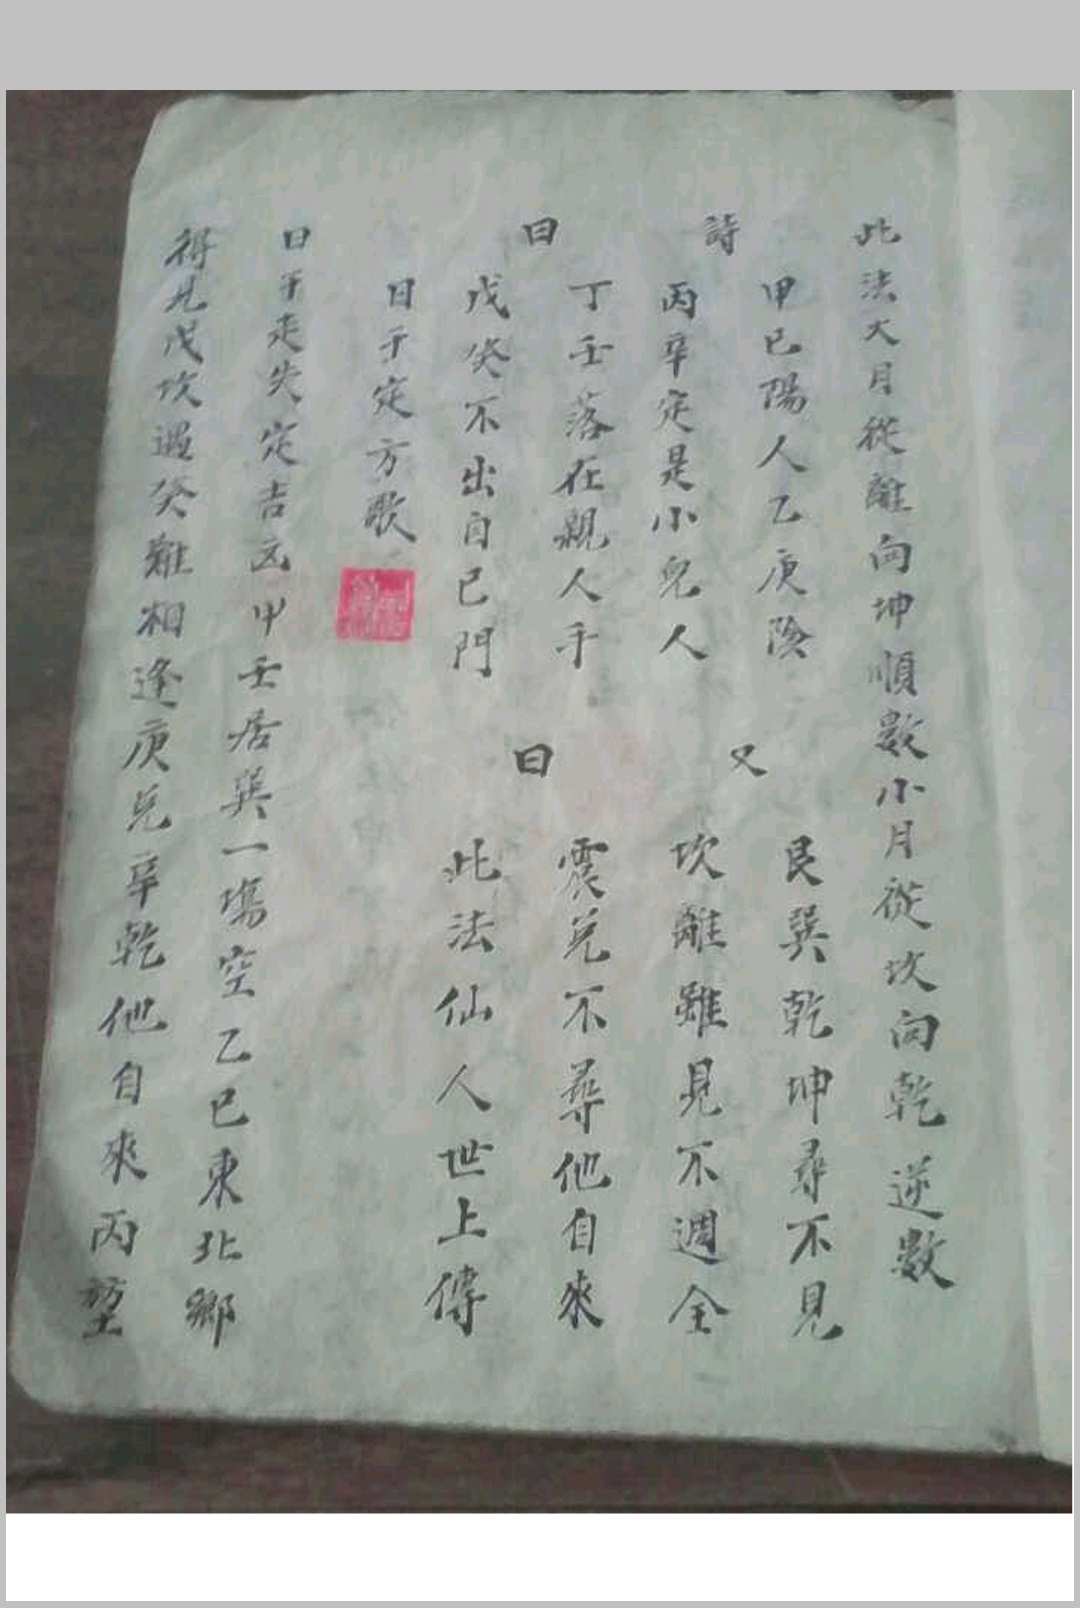 此法大月從離向坤順數小月從坎向乾逆數
詩
曰
甲己陽人乙庚陰
丙辛定是小兒人
丁壬落在親人手
戊癸不出自己門
又
曰
艮巽乾坤尋不見
坎離雖見不週全
震兌不尋他自來
此法仙人世上傳
日干定方歌
日干走失定吉凶甲壬居巽一塲空乙己東北鄉
得見戊坎遇癸難相逢庚兌辛乾他自來丙堃